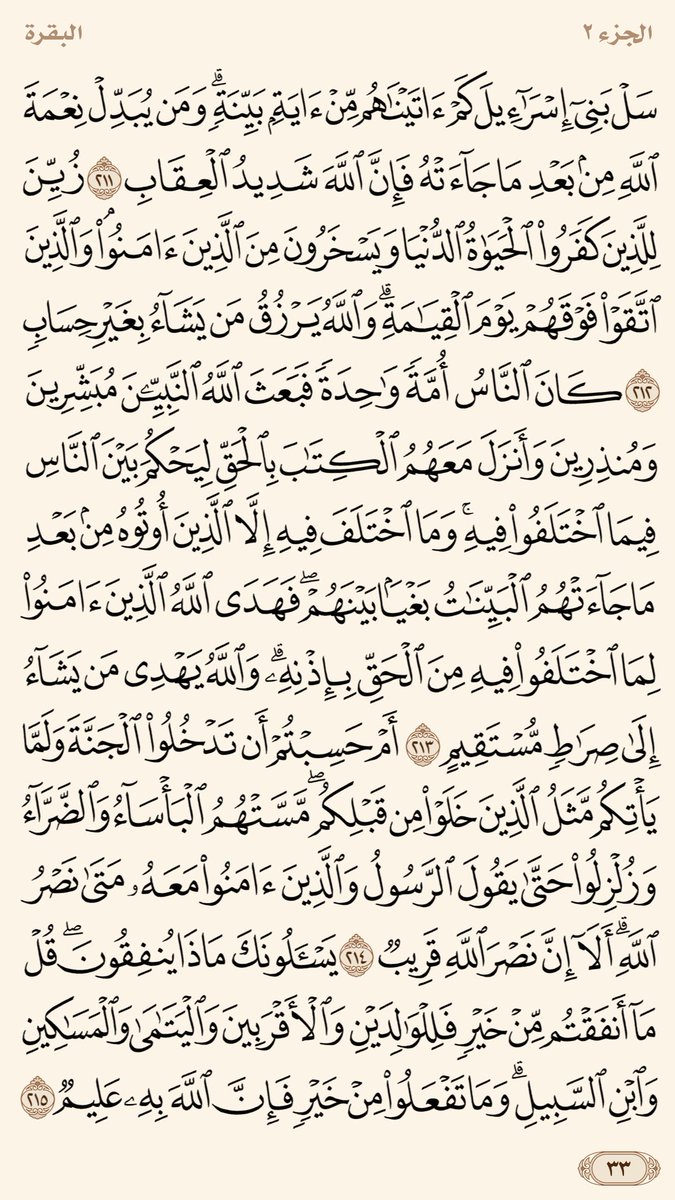 الجزء ٢
البقرة
سَلْ بَنِىٓ إِسْرَٰٓءِيلَ كَمْ ءَاتَيْنَٰهُم مِّنْ ءَايَةٍۭ بَيِّنَةٍۢ ۗ وَمَن يُبَدِّلْ نِعْمَةَ
ٱللَّهِ مِنۢ بَعْدِ مَا جَآءَتْهُ فَإِنَّ ٱللَّهَ شَدِيدُ ٱلْعِقَابِ ٢١١ زُيِّنَ
لِلَّذِينَ كَفَرُوا۟ ٱلْحَيَوٰةُ ٱلدُّنْيَا وَيَسْخَرُونَ مِنَ ٱلَّذِينَ ءَامَنُوا۟ ۘ وَٱلَّذِينَ
ٱتَّقَوْا۟ فَوْقَهُمْ يَوْمَ ٱلْقِيَٰمَةِ ۗ وَٱللَّهُ يَرْزُقُ مَن يَشَآءُ بِغَيْرِ حِسَابٍۢ
٢١٢ كَانَ ٱلنَّاسُ أُمَّةًۭ وَٰحِدَةًۭ فَبَعَثَ ٱللَّهُ ٱلنَّبِيِّـۧنَ مُبَشِّرِينَ
وَمُنذِرِينَ وَأَنزَلَ مَعَهُمُ ٱلْكِتَٰبَ بِٱلْحَقِّ لِيَحْكُمَ بَيْنَ ٱلنَّاسِ
فِيمَا ٱخْتَلَفُوا۟ فِيهِ ۚ وَمَا ٱخْتَلَفَ فِيهِ إِلَّا ٱلَّذِينَ أُوتُوهُ مِنۢ بَعْدِ
مَا جَآءَتْهُمُ ٱلْبَيِّنَٰتُ بَغْيًۢا بَيْنَهُمْ ۖ فَهَدَى ٱللَّهُ ٱلَّذِينَ ءَامَنُوا۟
لِمَا ٱخْتَلَفُوا۟ فِيهِ مِنَ ٱلْحَقِّ بِإِذْنِهِۦ ۗ وَٱللَّهُ يَهْدِى مَن يَشَآءُ
إِلَىٰ صِرَٰطٍۢ مُّسْتَقِيمٍ ٢١٣ أَمْ حَسِبْتُمْ أَن تَدْخُلُوا۟ ٱلْجَنَّةَ وَلَمَّا
يَأْتِكُم مَّثَلُ ٱلَّذِينَ خَلَوْا۟ مِن قَبْلِكُم ۖ مَّسَّتْهُمُ ٱلْبَأْسَآءُ وَٱلضَّرَّآءُ
وَزُلْزِلُوا۟ حَتَّىٰ يَقُولَ ٱلرَّسُولُ وَٱلَّذِينَ ءَامَنُوا۟ مَعَهُۥ مَتَىٰ نَصْرُ
ٱللَّهِ ۗ أَلَآ إِنَّ نَصْرَ ٱللَّهِ قَرِيبٌۭ ٢١٤ يَسْـَٔلُونَكَ مَاذَا يُنفِقُونَ ۖ قُلْ
مَآ أَنفَقْتُم مِّنْ خَيْرٍۢ فَلِلْوَٰلِدَيْنِ وَٱلْأَقْرَبِينَ وَٱلْيَتَٰمَىٰ وَٱلْمَسَٰكِينِ
وَٱبْنِ ٱلسَّبِيلِ ۗ وَمَا تَفْعَلُوا۟ مِنْ خَيْرٍۢ فَإِنَّ ٱللَّهَ بِهِۦ عَلِيمٌۭ ٢١٥
٣٣